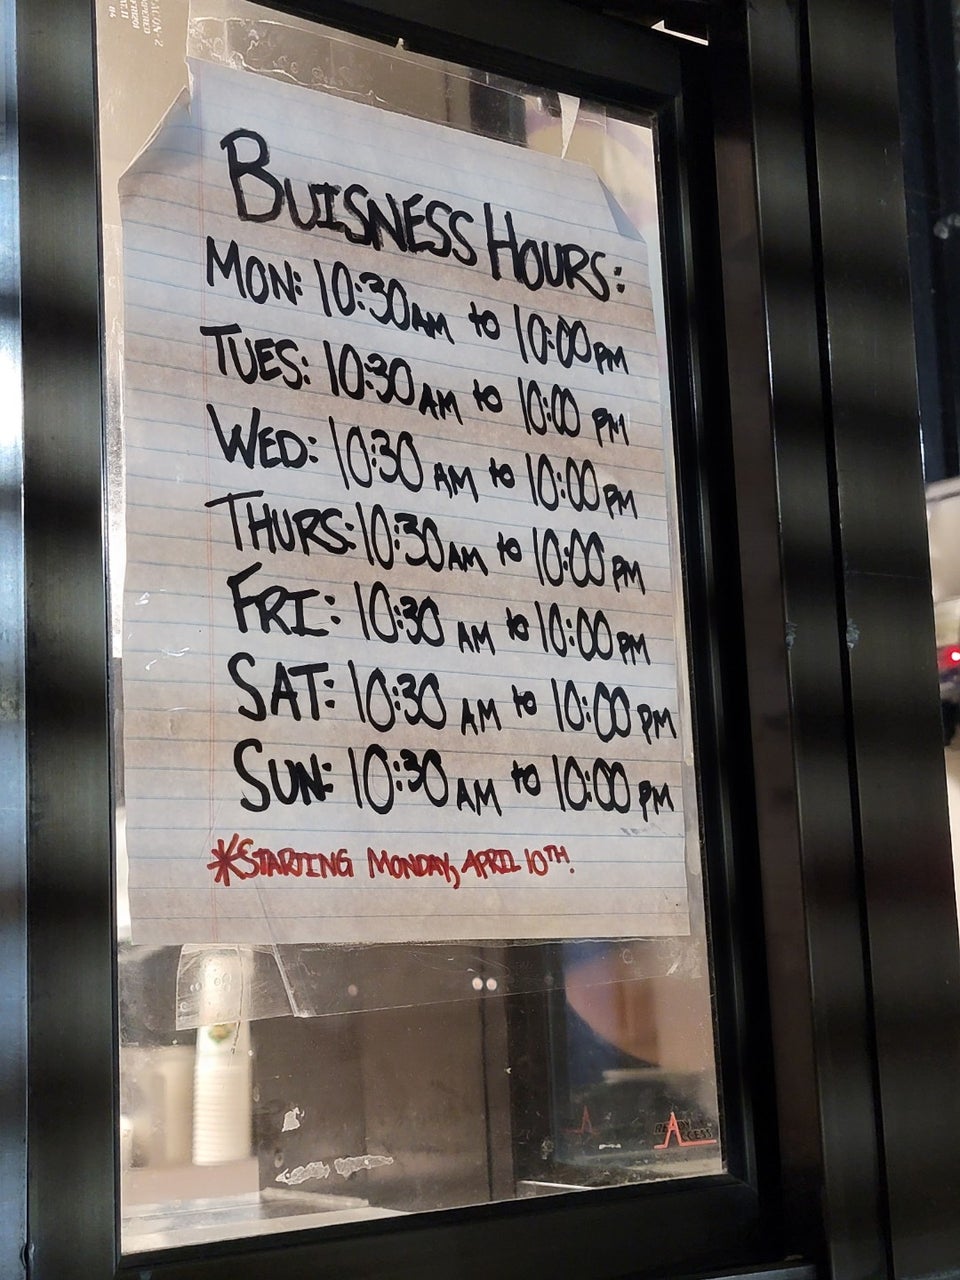 BUISNESS HOURS:
MON: 10:30AM to 10:00PM
TUES: 10:30AM to 10:00 PM
WED: 10:30 AM to 10:00PM
THURS: 10:30AM to 10:00 PM
FRI: 10:30 AM to 10:00PM
SAT: 10:30 AM to 10:00 PM
SUN: 10:30AM to 10:00 PM
*STARTING MONDAY, APRIL 10TH.
READY ACCESS